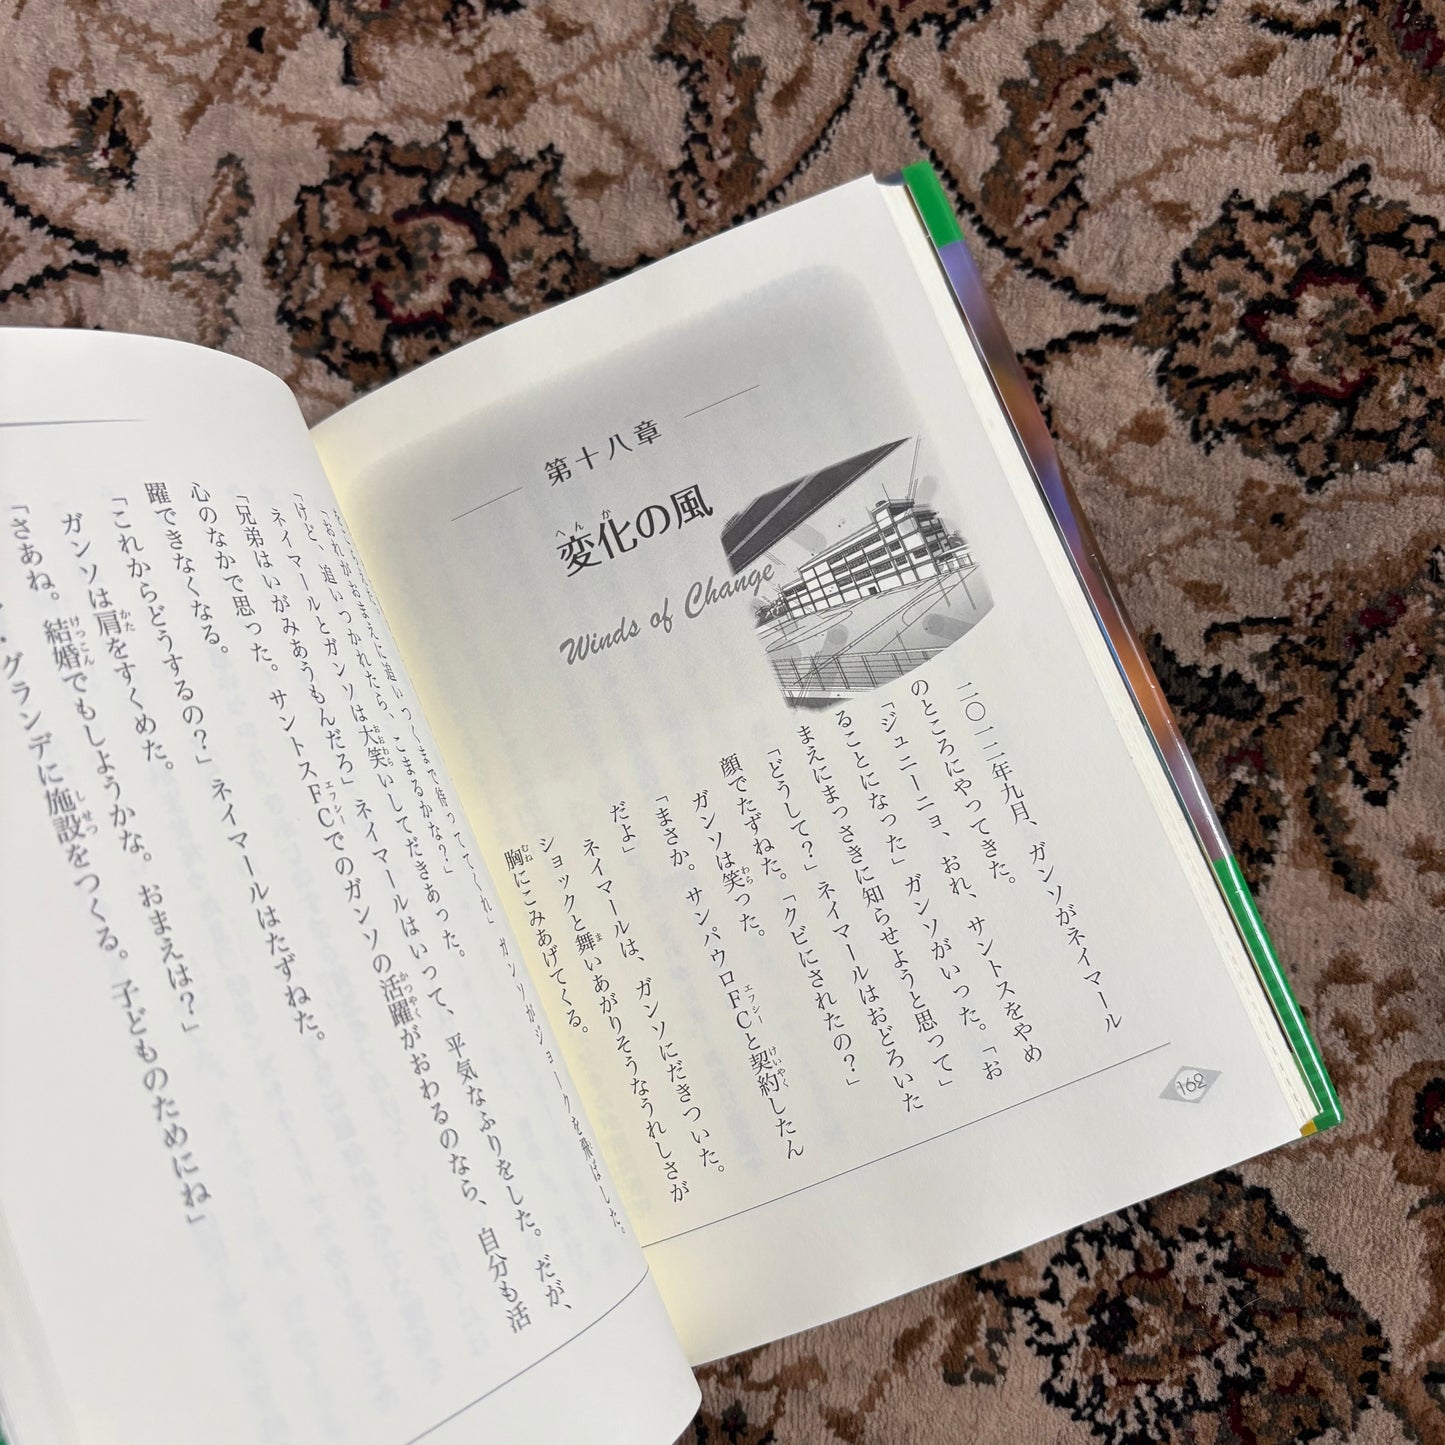 第十八章
変化の風
へんか
Winds of Change
二〇一二年九月、ガンソがネイマール
のところにやってきた。
「ジュニーニョ、おれ、サントスをやめ
ることになった」ガンソがいった。「お
まえにまっさきに知らせようと思って」
「どうして?」ネイマールはおどろいた
顔でたずねた。「クビにされたの?」
ガンソは笑った。
わら
「まさか。サンパウロFCと契約したん
エフシー
けいやく
だよ」
ネイマールは、ガンソにだきついた。
ショックと舞いあがりそうなうれしさが
ま
胸にこみあげてくる。
むね
162
ガンソがジョークを飛ばした。
「おれがおまえに追いつくまで待っててくれ」
「けど、追いつかれたら、こまるかな?」
ネイマールとガンソは大笑いしてだきあった。
おおわら
「兄弟はいがみあうもんだろ」ネイマールはいって、平気なふりをした。だが、
心のなかで思った。サントスFCでのガンソの活躍がおわるのなら、自分も活
エフシー
かつやく
躍できなくなる。
「これからどうするの?」ネイマールはたずねた。
ガンソは肩をすくめた。
かた
「さあね。結婚でもしようかな。おまえは?」
けっこん
・グランデに施設をつくる。子どものためにね」
しせつ